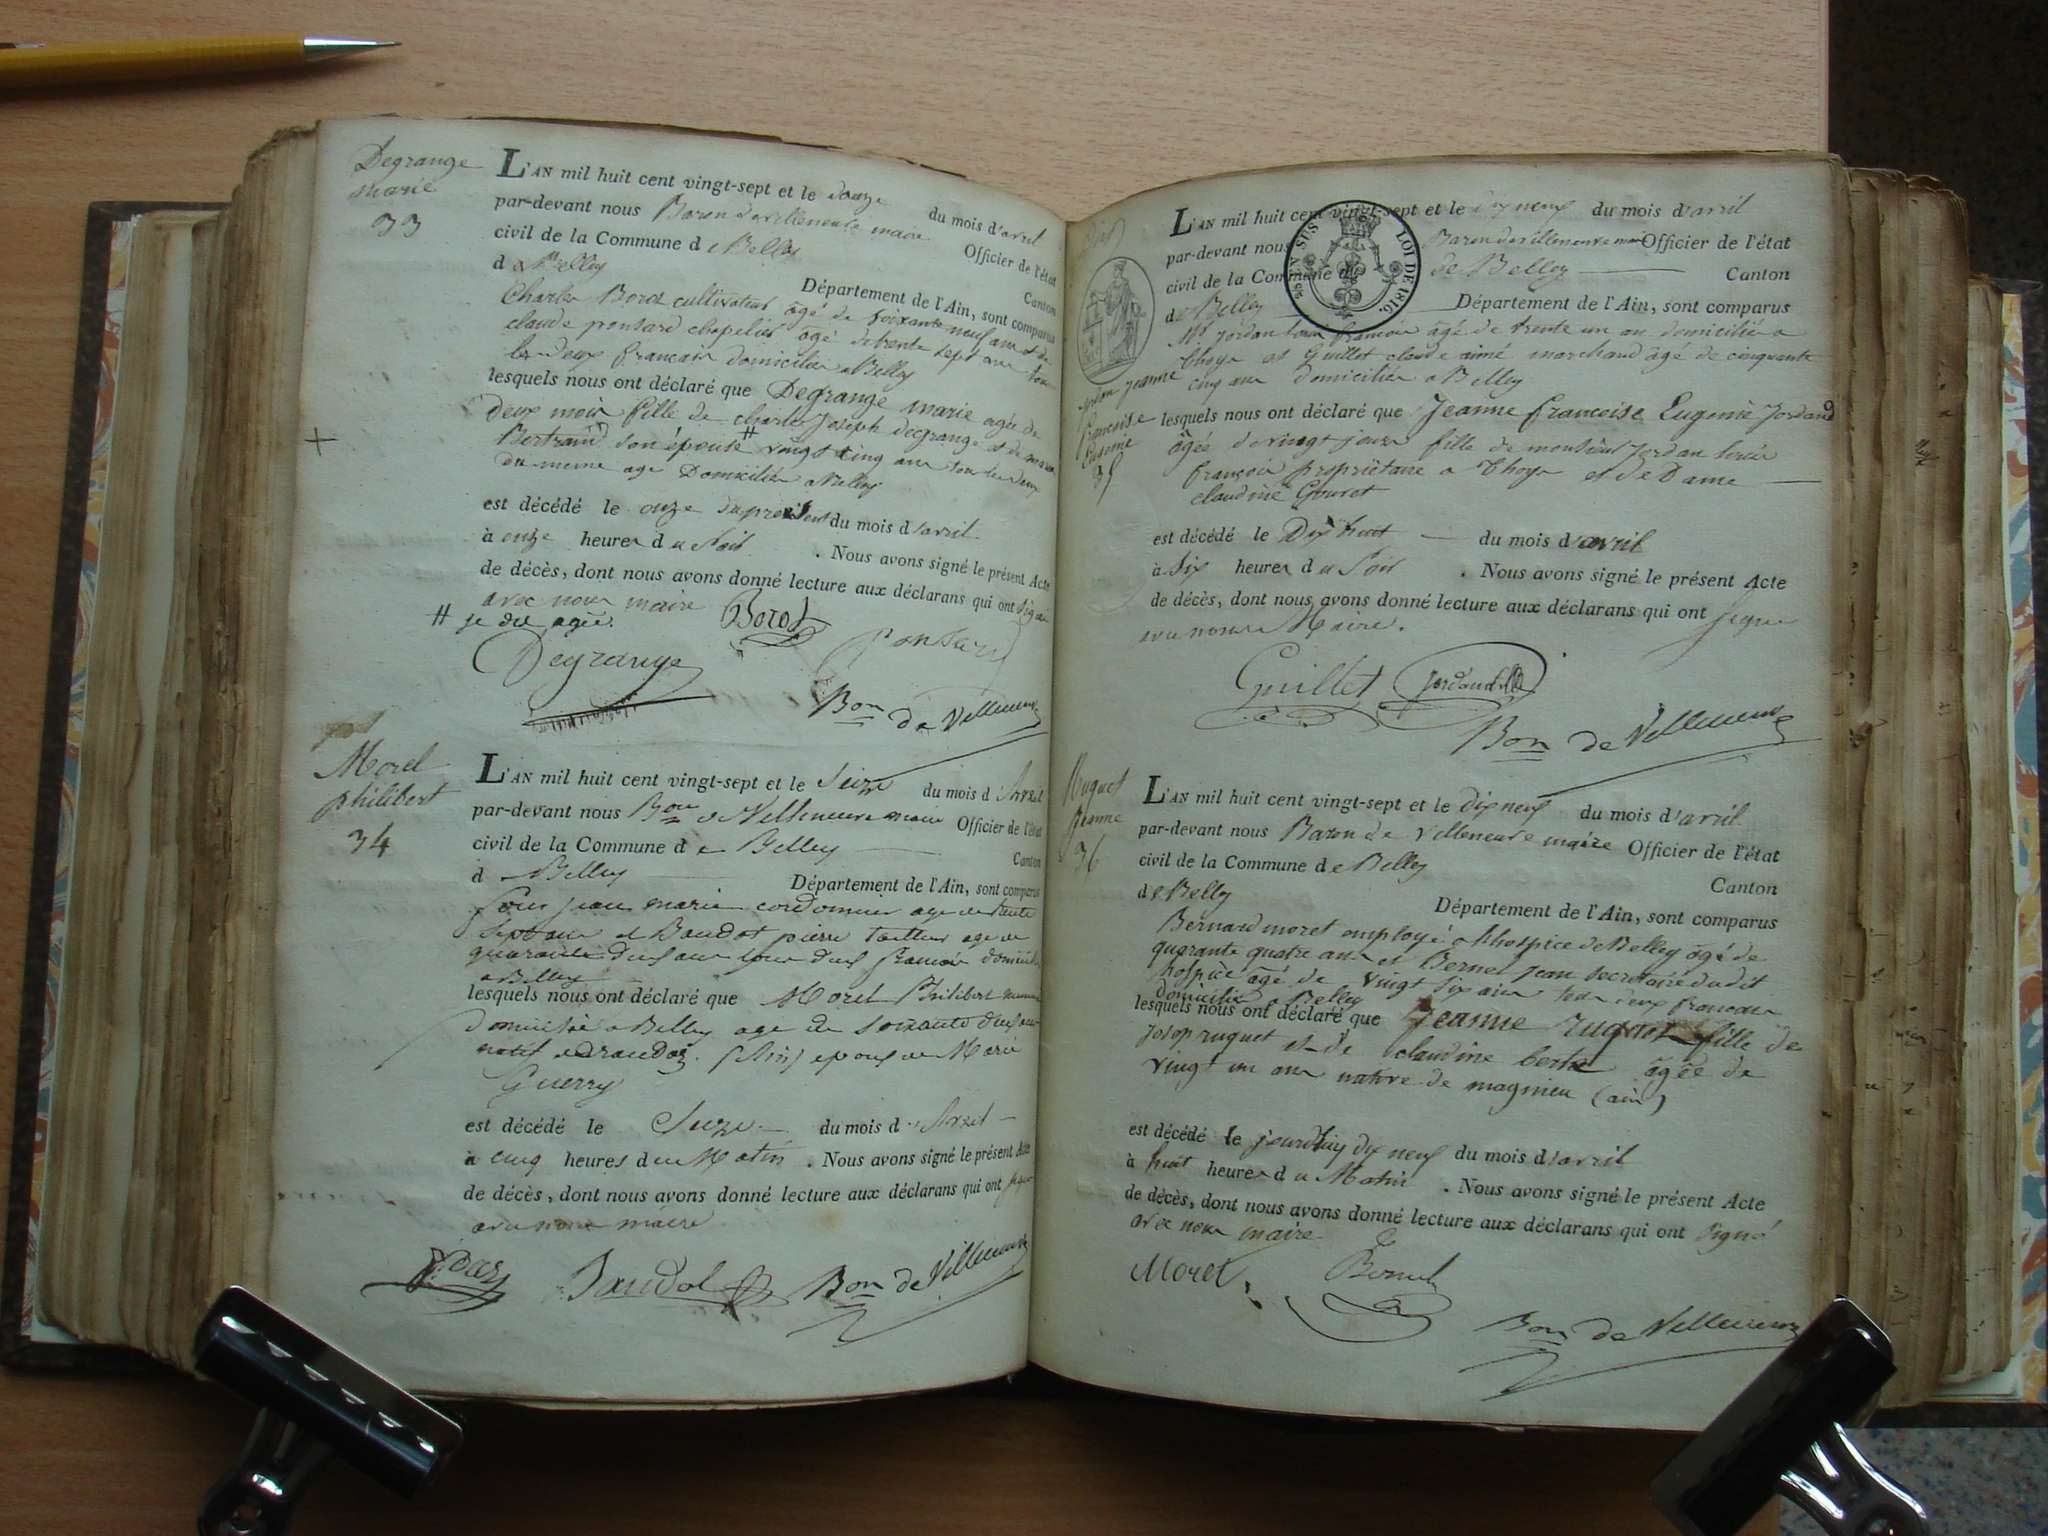 Degrange
marie
33
L'AN mil huit cent vingt-sept et le douze du mois d'avril
par-devant nous Baron de villeneuve maire Officier de l'état
civil de la Commune de Belley Canton
de Belley Département de l'Ain, sont comparus
Charles Borot cultivateur âgé de soixante neuf ans et de
claude ponsard chapelier âgé de trente sept ans tous
les deux français domiciliés a Belley
lesquels nous ont déclaré que Degrange marie agée de
deux mois fille de charles Joseph degrange et de
Bertrand son épouse # vingt cinq ans tous les deux
du meme age Domiciliés a Belley
est décédé le onze du present du mois d'avril
à onze heures du soir . Nous avons signé le présent Acte
de décès, dont nous avons donné lecture aux déclarans qui ont signé
avec nous maire
# je dis agée.
Borot
Ponsard
Degrange
Bon de Villeneuve
Morel
philibert
34
L'AN mil huit cent vingt-sept et le seize du mois d'Avril
par-devant nous Bon de Villeneuve maire Officier de l'état
civil de la Commune de Belley Canton
de Belley Département de l'Ain, sont comparus
jean marie cordonnier age de trente
sept ans et Baudot pierre tailleur age de
quarante deux ans tous deux francais domiciliés
a Belley
lesquels nous ont déclaré que Morel Philibert
domicilié a Belley age de soixante deux ans
natif (Ain) epoux de Marie
Guerry
est décédé le Seize du mois d'Avril
à cinq heures du Matin . Nous avons signé le présent Acte
de décès, dont nous avons donné lecture aux déclarans qui ont signé
avec nous maire
Baudot
Bon de Villeneuve
L'AN mil huit cent vingt-sept et le dix neuf du mois d'avril
par-devant nous Baron de villeneuve maire Officier de l'état
civil de la Commune de Belley Canton
de Belley Département de l'Ain, sont comparus
EN SUS
LOI DE 1816.
Mr jordan louis francois âgé de trente un an domicilié a
Thoys et Guillet claude aimé marchand âgé de cinquante
cinq ans domicilié a Belley
jordan jeanne
francoise
Eugenie
35
lesquels nous ont déclaré que Jeanne francoise Eugenie Jordan
âgée de vingt jours fille de monsieur Jordan louis
françois propriétaire a Thoys et de Dame
claudine Gouret
est décédé le Dix huit du mois d'avril
à six heures du soir . Nous avons signé le présent Acte
de décès, dont nous avons donné lecture aux déclarans qui ont signé
avec nous Maire.
Guillet
Jordan
Bon de Villeneuve
Ruquet
Jeanne
36
L'AN mil huit cent vingt-sept et le dix neuf du mois d'avril
par-devant nous Baron de villeneuve maire Officier de l'état
civil de la Commune de Belley
Canton
de Belley
Département de l'Ain, sont comparus
Bernard moret employé a l'hospice de Belley âgé de
quarante quatre ans et Bernet jean secretaire dudit
hospice âgé de vingt six ans tous deux francais
domicilié a Belley
lesquels nous ont déclaré que Jeanne ruquet fille de
Josep ruquet et de claudine âgée de
vingt un ans native de magnieu (ain)
est décédé le jourdhuy dix neuf du mois d'avril
à huit heures du Matin . Nous avons signé le présent Acte
de décès, dont nous avons donné lecture aux déclarans qui ont signé
avec nous maire
Moret
Bernet
Bon de Villeneuve